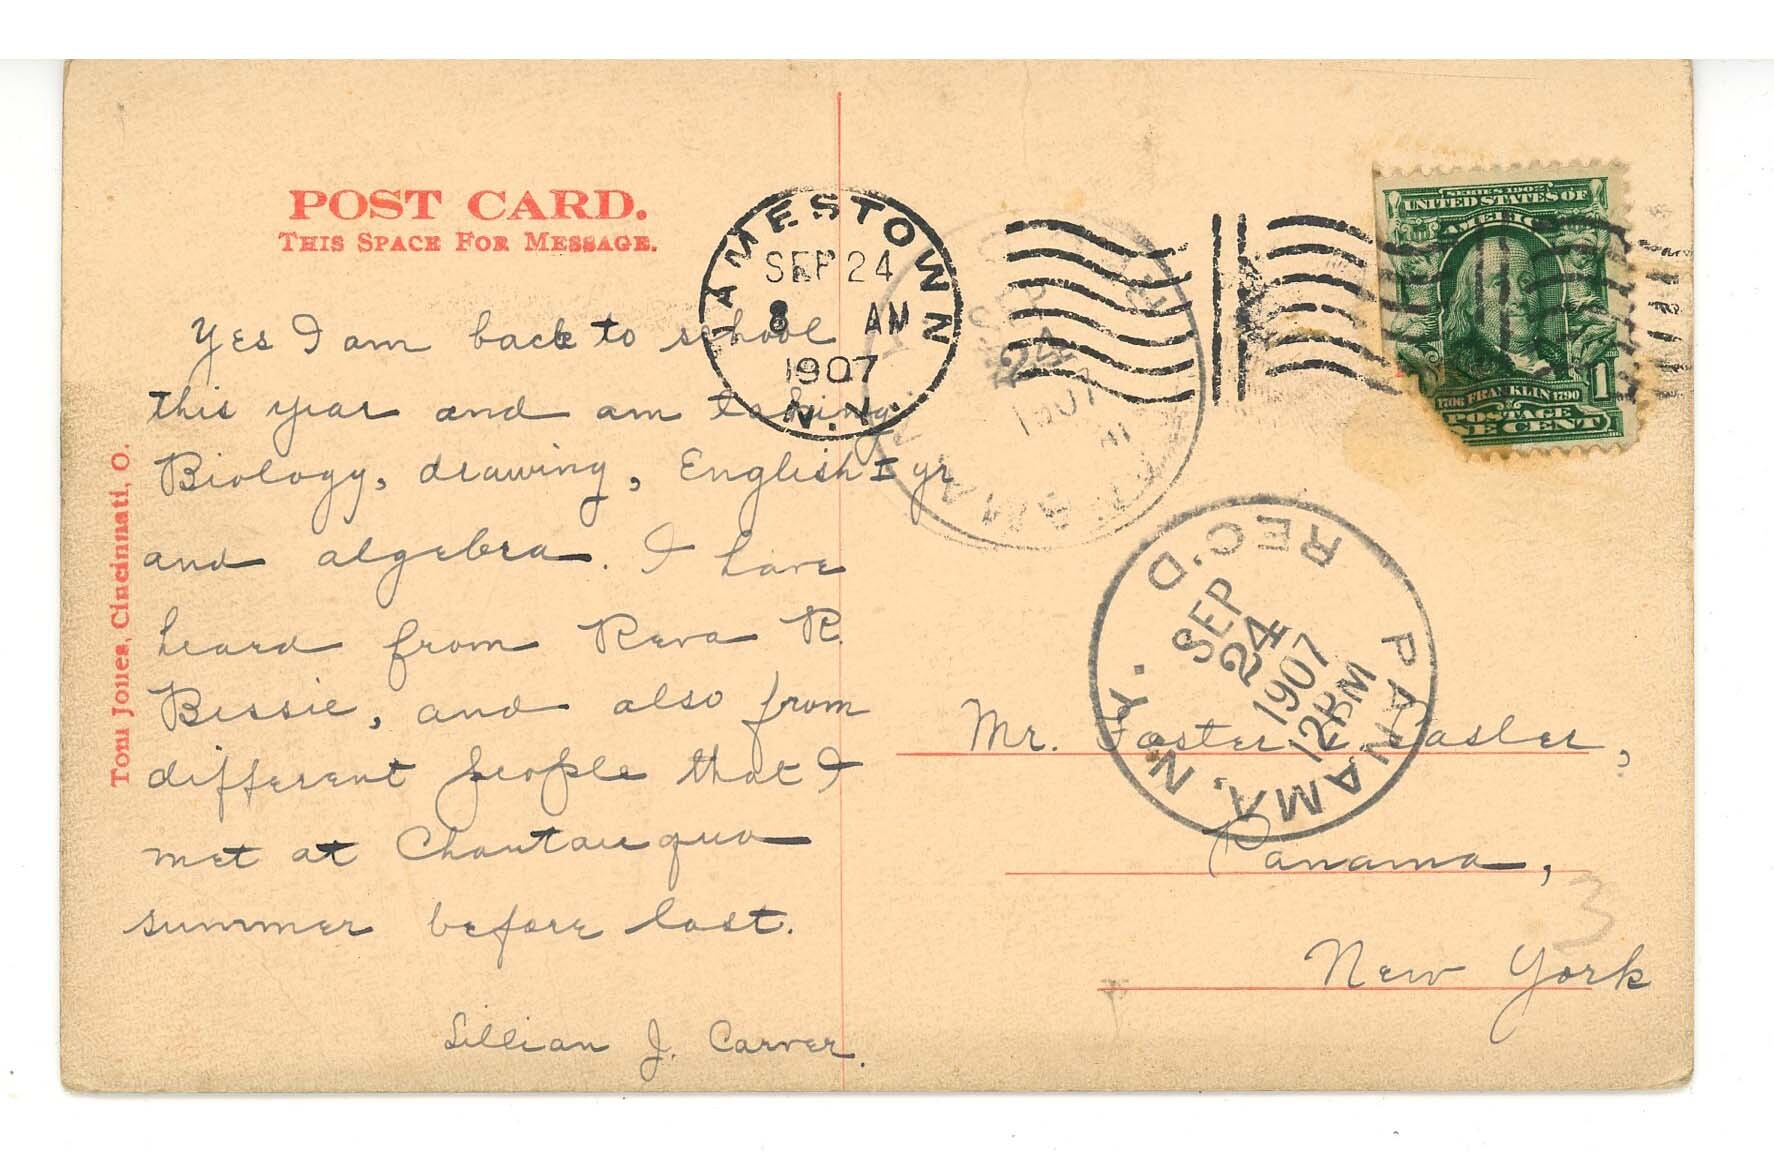 POST CARD.
THIS SPACE FOR MESSAGE.
JAMESTOWN
SEP 24
8 AM
1907
N.Y.
SERIES 1902
UNITED STATES OF
AMERICA
1706 FRANKLIN 1790
1
POSTAGE
ONE CENT
SEP
24
1907
PANAMA
Yes I am back to school
this year and am taking
Biology, drawing, English I yr
and algebra. I have
heard from Reva R.
Bessie, and also from
different people that I
met at Chautauqua
summer before last.
Lillian J. Carver.
Tom Jones, Cincinnati, O.
REC'D.
PANAMA, N.Y.
SEP
24
1907
12 M
Mr. Foster Casler,
Panama,
New York
3